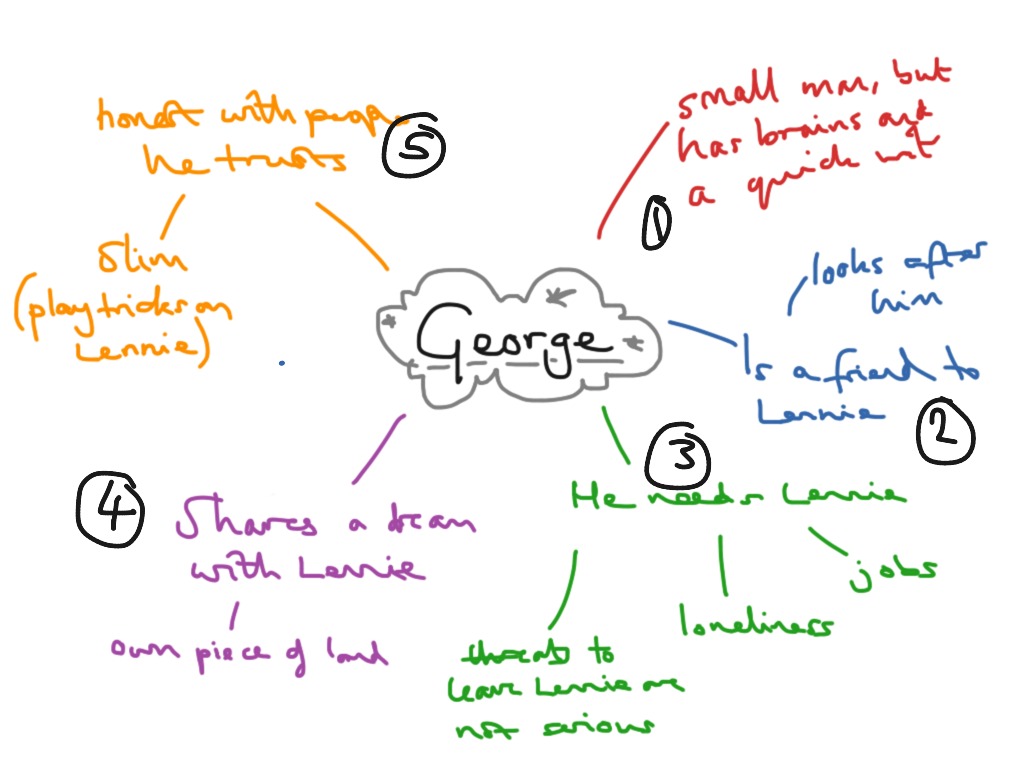 George
①
small man, but
has brains and
a quick wit
②
Is a friend to
Lennie
looks after
him
③
He needs Lennie
threats to
leave Lennie are
not serious
loneliness
jobs
④
Shares a dream
with Lennie
own piece of land
⑤
honest with people
he trusts
Slim
(play tricks on
Lennie)